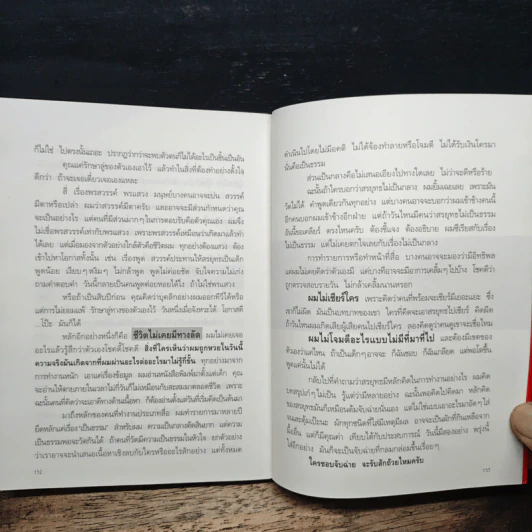 ก็ไม่ใช่ ไปตรงนั้นเถอะ ปรากฏว่ากว่าจะพบตัวตนก็ไม่ได้อะไรเป็นชิ้นเป็นอัน
คุณแค่รักษาลู่ของตัวเองเอาไว้ แล้วทำในสิ่งที่ต้องทำอย่างตั้งใจ
ดีกว่า ถ้าจะเจอเดี๋ยวเจอเองแหละ
สี่ เรื่องพรสวรรค์ พรแสวง มนุษย์บางคนอาจจะบ่น สวรรค์
มีตาหรือเปล่า ผมว่าสวรรค์มีตาครับ และอาจจะมีส่วนกำหนดว่าคุณ
จะเป็นอย่างไร แต่คนที่มีส่วนมากๆ ในการตอบรับคือตัวคุณเอง ผมจึง
ไม่เชื่อพรสวรรค์เท่ากับพรแสวง เพราะพรสวรรค์เหมือนว่าเกิดมาแล้วทำ
ได้เลย แต่เมื่อมองจากตัวอย่างใกล้ตัวคือชีวิตผม ทุกอย่างต้องแสวง ต้อง
เข้าไปหาโอกาสทั้งนั้น เช่น เรื่องพูด สวรรค์ประทานให้สรยุทธเป็นเด็ก
พูดน้อย เงียบๆ หงิมๆ ไม่กล้าพูด พูดไม่ค่อยชัด จับใจความไม่เก่ง
ถามคำตอบคำ วันนี้กลายเป็นคนพูดต่อยหอยได้ไง ถ้าไม่ใช่พรแสวง
หรือถ้าเป็นสิบปีก่อน คุณคิดว่าบุคลิกอย่างผมออกทีวีได้หรือ
แต่การไม่ยอมแพ้ รักษาลู่ทางของตัวเองไว้ วันหนึ่งเมื่อจังหวะได้ โอกาสดี
...โป๊ะ มันก็ได้
หลักอีกอย่างหนึ่งก็คือ ชีวิตไม่เคยมีทางลัด ผมไม่เคยเจอ
อะไรแล้วรู้สึกว่าตัวเองโชคดี๊โชคดี สิ่งที่ใครเห็นว่าผมถูกหวยในวันนี้
ความจริงมันเกิดจากที่ผมผ่านอะไรต่ออะไรมาไม่รู้กี่ชั้น ทุกอย่างมาจาก
การทำงานหนัก เอาแค่เรื่องข้อมูล ผมอ่านหนังสือพิมพ์มาตั้งแต่เด็ก คุณ
จะอ่านให้ตายภายในเวลาไม่กี่วันก็ไม่เหมือนกับสะสมมาตลอดชีวิต เพราะ
ฉะนั้นคนที่คิดว่าจะเอาดีทางด้านเนื้อหา ก็ต้องอ่านตั้งแต่วันที่เริ่มคิดเป็นต้นมา
มาถึงหลักของคนที่ทำงานประเภทสื่อ ผมทำรายการมาหลายปี
ยึดหลักแค่เรื่อง"เป็นธรรม" สำหรับผม ความเป็นกลางตัดสินยาก แต่ความ
เป็นธรรมพอจะวัดกันได้ ถ้าคนที่วัดมีความเป็นธรรมในหัวใจ ยกตัวอย่าง
ว่าเราอาจจะนำเสนอเนื้อหาเชิงลบกับใครหรืออะไรสักอย่าง แต่ทั้งหมด
152
ดำเนินไปโดยไม่มีอคติ ไม่ได้จ้องทำลายหรือโจมตี ไม่ได้รับเงินใครมา
นั่นคือเป็นธรรม
ส่วนเป็นกลางคือไม่เสนอเอียงไปทางไหนเลย ไม่ว่าจะดีหรือร้าย
ฉะนั้นถ้าใครบอกว่าสรยุทธไม่เป็นกลาง ผมยิ้มแฉ่งเลย เพราะมัน
วัดไม่ได้ คำพูดเดียวกันทุกอย่าง แต่บางคนอาจจะบอกว่าผมเข้าข้างคนนี้
อีกคนบอกผมเข้าข้างอีกฝ่าย แต่ถ้าวันไหนมีคนว่าสรยุทธไม่เป็นธรรม
อันนี้ขอเคลียร์ ตรงไหนครับ ต้องชี้แจง ต้องอธิบาย ผมซีเรียสกับเรื่อง
ไม่เป็นธรรม แต่ไม่เคยตกใจเลยกับเรื่องไม่เป็นกลาง
การทำรายการหรือทำหน้าที่สื่อ บางคนอาจจะมองว่ามีอิทธิพล
แต่ผมไม่เคยคิดว่าตัวเองมี แต่บางทีอาจจะมีอาการเคลิ้มๆ ไปบ้าง โชคดีว่า
ถูกตรวจสอบรายวัน ไม่กล้าเคลิ้มนานหรอก
ผมไม่เชียร์ใคร เพราะคิดว่าคนที่พร้อมจะเชียร์มีเยอะแยะ ซึ่ง
เขาก็ไม่ผิด มันเป็นบทบาทของเขา ใครที่คิดจะเอาสรยุทธไปเชียร์ คิดผิด
ถ้าวันไหนผมเกิดเสียผู้เสียคนไปเชียร์ใคร ลองคิดดูว่าคนดูเขาจะเชื่อไหม
ผมไม่โจมตีอะไรแบบไม่มีที่มาที่ไป และต้องมีเขตของ
ตัวเองว่าแค่ไหน ถ้าเป็นเด็กๆ อาจจะ ก็ฉันชอบ ก็ฉันเกลียด แต่พอโตขึ้น
พูดแค่นั้นไม่ได้
กลับไปที่คำถามว่าสรยุทธมีหลักคิดในการทำงานอย่างไร ผมคิด
ของสรยุทธมันก็เหมือนต้มจับฉ่ายนั่นเอง แต่ไม่ใช่แบบเอาอะไรมาอัดๆ ใส่
ใครชอบจับฉ่าย จะรับสักถ้วยไหมครับ
153